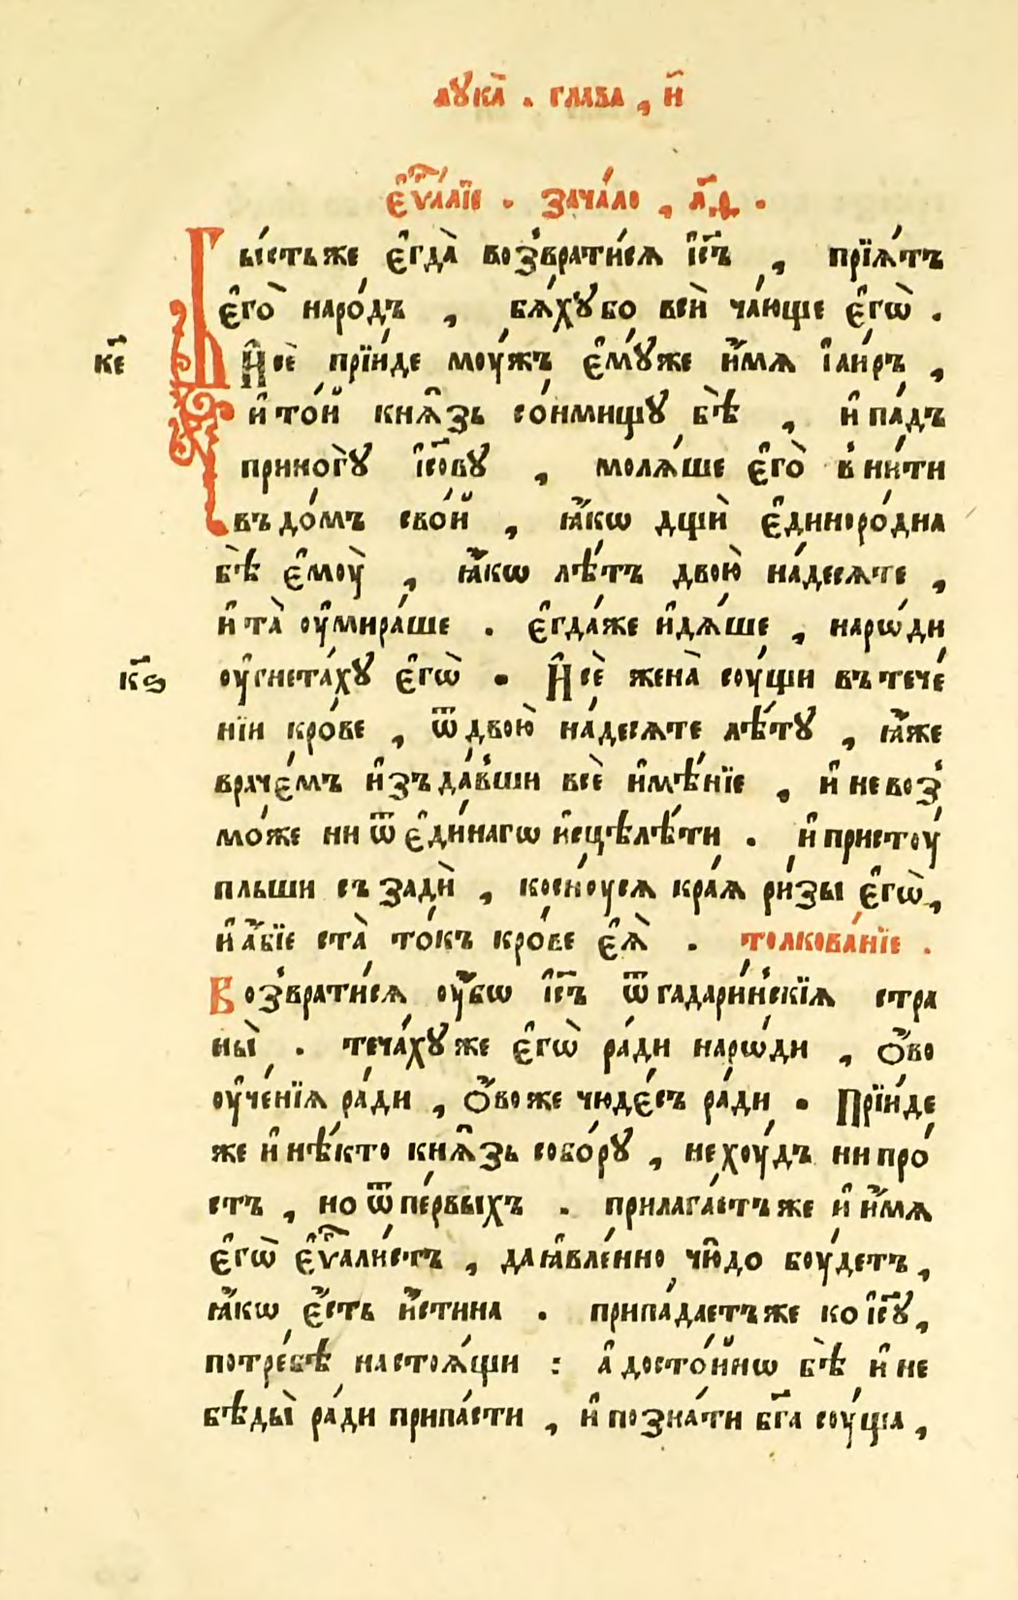 лꙋка̀ . глава̀ , и҃
є҆ѵⷢ҇лїе . зача́ло , л҃ѳ .
Бы́стьже є҆гда̀ возврати́сѧ і҆с҃ъ , прїѧ́тъ
є҆го̀ наро́дъ , бѧ́хꙋбо всѝ ча́юще є҆гѡ̀ .
к҃е
И҆ сѐ прїи́де моу́жъ є҆мꙋ́же и҆́мѧ і҆аи́ръ ,
и҆ то́й кнѧ́зь со́нмищꙋ бѣ̀ , и҆ па́дъ
принѡ́гꙋ і҆со́вꙋ , молѧ́ше є҆го̀ вни́ти
въ до́мъ сво́й , ꙗ҆́кѡ дщѝ є҆диноро́дна
бѣ̀ є҆моу̀ , ꙗ҆́кѡ лѣ́тъ двою̀ на́десѧте ,
и҆ та̀ оу҆мира́ше . є҆гда́же и҆дѧ́ше , наро́ди
оу҆гнета́хꙋ є҆гѡ̀ . И҆ сѐ жена̀ соу́щи въ тече́
к҃ѕ
нїи кро́ве , ѿ двою̀ на́десѧте лѣ́тꙋ , ꙗ҆́же
враче́мъ и҆зъда́вши всѐ и҆мѣ́нїе , и҆ невоз
мо́же ни ѿ є҆ди́нагѡ и҆сцѣлѣ́ти . и҆ пристоу́
пльши съ задѝ , косноу́сѧ кра́ѧ ри́зы є҆гѡ̀ ,
и҆ а҆́бїе ста̀ то́къ кро́ве є҆ѧ̀ . толкова́нїе .
Возврати́сѧ оу҆́бѡ і҆с҃ъ ѿ гадари́нскїѧ стра
ны̀ . теча́хꙋже є҆гѡ̀ ра́ди наро́ди , ѻ҆́во
оу҆че́нїѧ ра́ди , ѻ҆́воже чюде́съ ра́ди . Прїи́де
же и҆ нѣ́кто кнѧ́зь собо́рꙋ , нехоу́дъ нипро́
стъ , но ѿ пе́рвыхъ . прилага́етъже и҆ и҆́мѧ
є҆гѡ̀ є҆ѵⷢ҇ли́стъ , да ꙗ҆вле́нно чю́до боу́детъ ,
ꙗ҆́кѡ є҆́сть и҆́стина . припа́даетъже ко і҆с҃ꙋ ,
потре́бѣ настоѧ́щи : а҆ досто́йнѡ бѣ̀ и҆ не
бѣды̀ ра́ди припа́сти , и҆ позна́ти бг҃а соу́ща ,